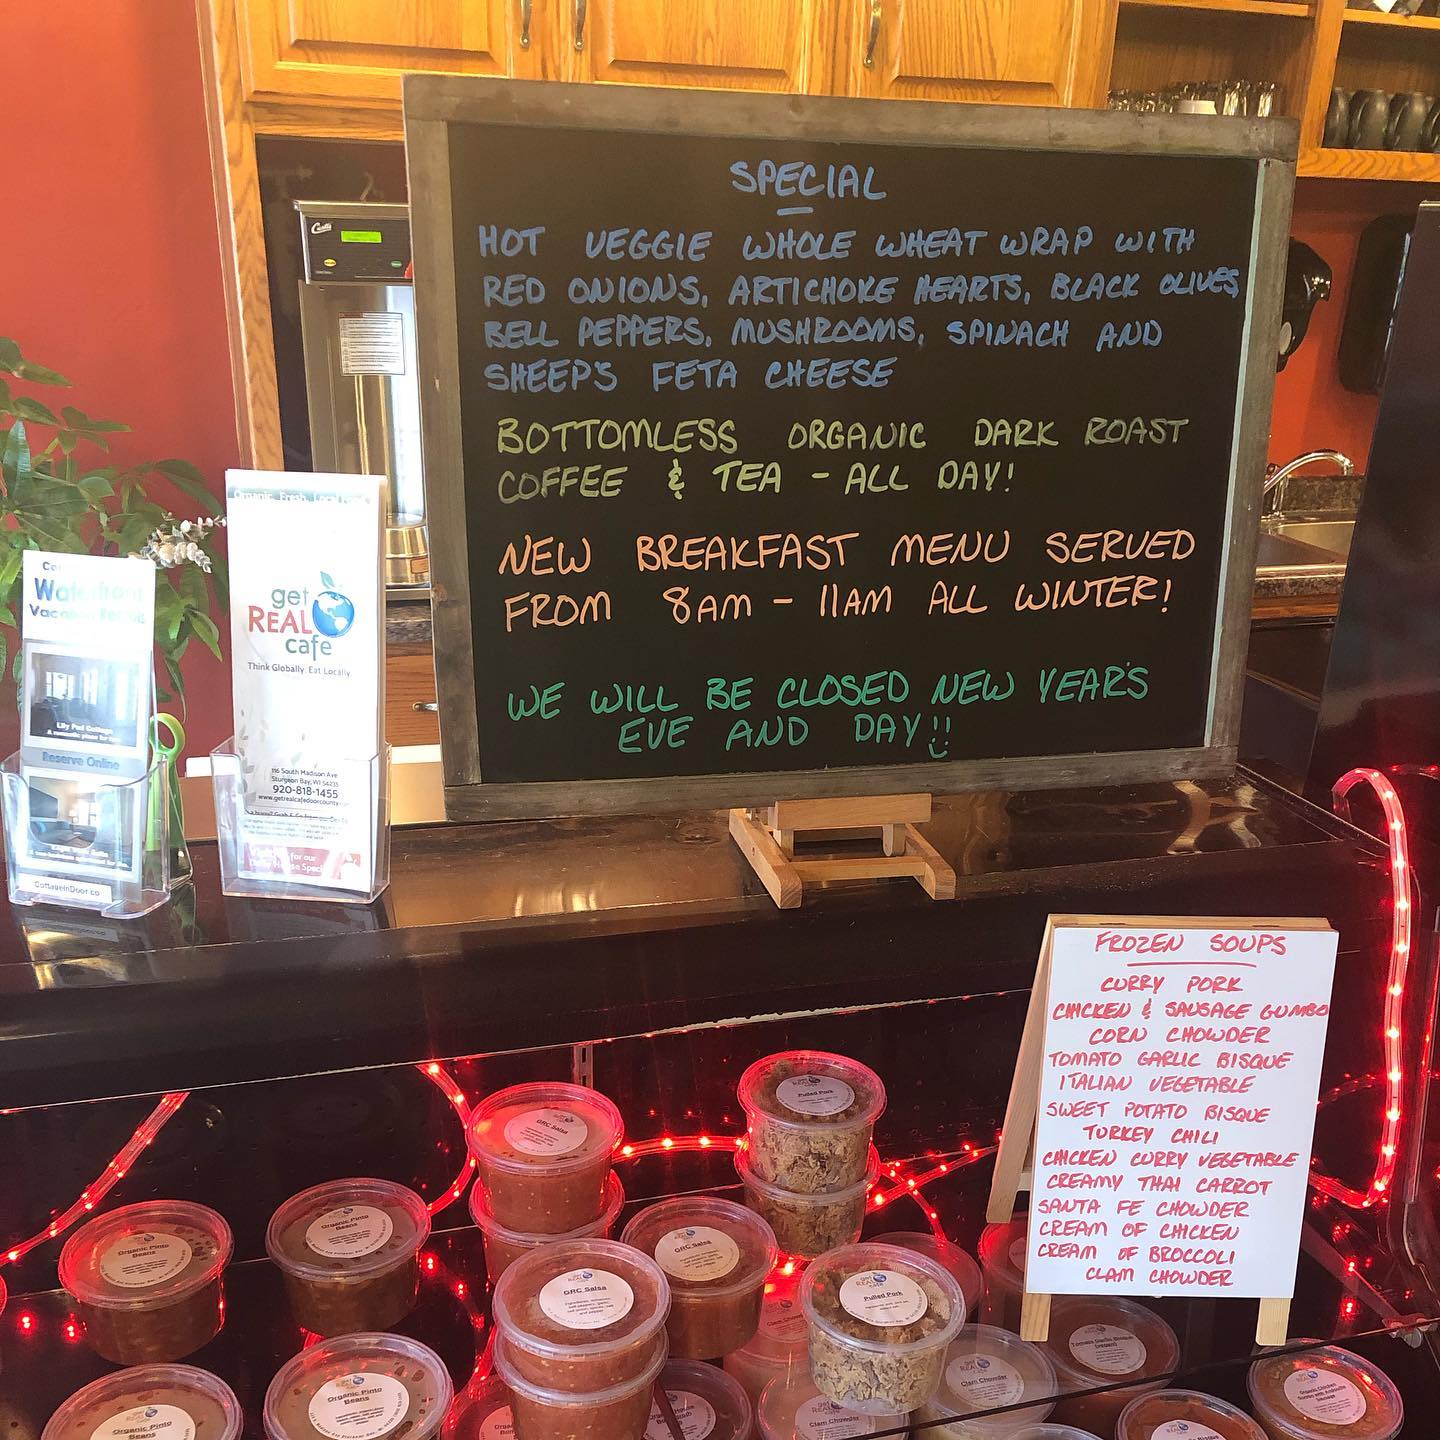 SPECIAL
HOT VEGGIE WHOLE WHEAT WRAP WITH
RED ONIONS, ARTICHOKE HEARTS, BLACK OLIVES,
BELL PEPPERS, MUSHROOMS, SPINACH AND
SHEEP'S FETA CHEESE
BOTTOMLESS ORGANIC DARK ROAST
COFFEE & TEA - ALL DAY!
NEW BREAKFAST MENU SERVED
FROM 8AM - 11AM ALL WINTER!
WE WILL BE CLOSED NEW YEAR'S
EVE AND DAY!!
Curtis
Waterfront
Lily Pad Cottage
Reserve Online
CottageInDoor.co
Organic. Fresh. Local Food
get
REAL
cafe
Think Globally. Eat Locally
116 South Madison Ave
Sturgeon Bay, WI 54235
920-818-1455
www.getrealcafedoorcounty
for our
FROZEN SOUPS
CURRY PORK
CHICKEN & SAUSAGE GUMBO
CORN CHOWDER
TOMATO GARLIC BISQUE
ITALIAN VEGETABLE
SWEET POTATO BISQUE
TURKEY CHILI
CHICKEN CURRY VEGETABLE
CREAMY THAI CARROT
SANTA FE CHOWDER
CREAM OF CHICKEN
CREAM OF BROCCOLI
CLAM CHOWDER
Pulled Pork
GRC Salsa
Organic Pinto
Beans
Organic Pinto
Beans
GRC Salsa
get
REAL
cafe
GRC Salsa
get
REAL
cafe
Pulled Pork
Organic Pinto
Beans
Organic Pinto
Beans
get
REAL
cafe
Clam Chowder
Clam Chowder
Tomato Garlic Bisque